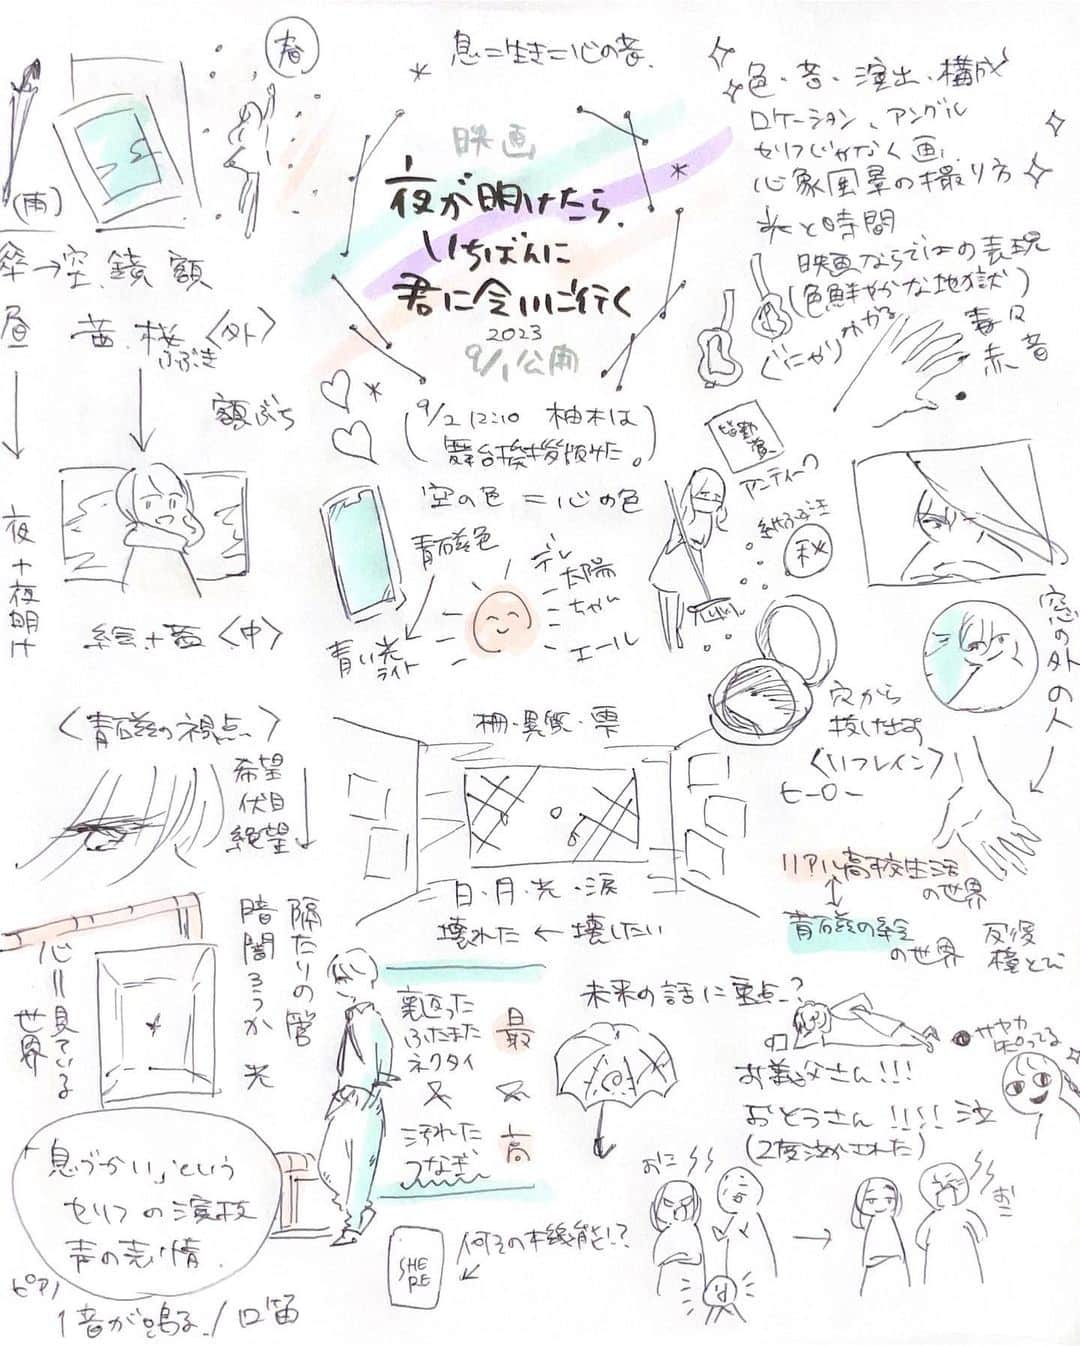 春
(雨)
傘→空、鏡、額
昼 茜、桜 <外>
ふぶき
額ぶち
夜+夜明け
絵+茜<中>
<青磁の視点>
希望
伏目
絶望
隔たりの管
暗闇ろうか 光
心=見ている世界
「息づかい」という
セリフの演技
声の表情
ピアノ
1音が鳴る/口笛
息=生き=心の音
映画
夜が明けたら、
いちばんに
君に会いに行く
2023
9/1公開
(9/2 12:10 柚木は
舞台挨拶版みた。)
空の色=心の色
青磁色
青い光
ライト
デレ
太陽
ちゃん
エール
柵・異質・雫
日・月・光・涙
壊れた←壊したい
裏返った
ふたまた
ネクタイ
汚れた
つなぎ
最
高
SHE
RE
何その本機能!?
色・音・演出、構成
ロケーション、アングル
セリフじゃなく画、
心象風景の撮り方
光と時間
映画ならではの表現
(色鮮やかな地獄)
ぐにゃり
赤、音
アンティーク
秋
窓の外の人
穴から
抜け出す
<リフレイン>
ヒーロー
リアル高校生活
の世界
青磁の絵
の世界
未来の話に重点?
サヤカ
お義父さん!!!
おとうさん!!!! 泣
(2度泣かされた)